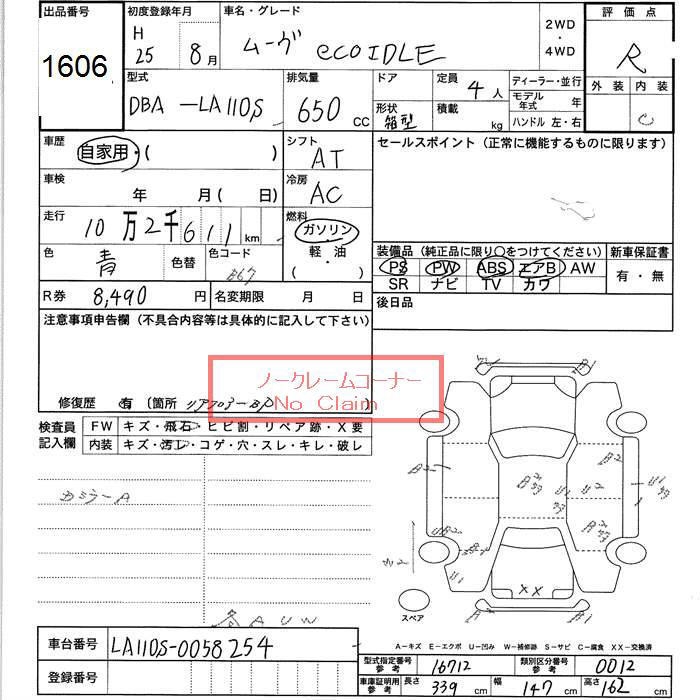 出品番号
1606
初度登録年月
H 25 8月
車名・グレード
ムーヴ eco IDLE
2WD
・
4WD
評価点
R
外装 内装
C
型式
DBA-LA110S
排気量
650 cc
ドア
形状
箱型
定員 4人
積載 kg
ディーラー・並行
モデル年式 年
ハンドル 左・右
車歴
自家用・( )
シフト
AT
セールスポイント (正常に機能するものに限ります)
車検
年 月(日)
冷房
AC
走行
10万2千611km
燃料
ガソリン
軽・油
( ・ )
色
青
色替
色コード
装備品 (純正品に限り○をつけてください)
PS PW ABS エアB AW
SR ナビ TV カワ
新車保証書
有・無
R券 8,490 円
名変期限 月 日
後日品
注意事項申告欄 (不具合内容等は具体的に記入して下さい)
ノークレームコーナー
No Claim
修復歴 有 〔箇所 リアフロアーBP
検査員記入欄
FW キズ・飛石・ヒビ割・リペア跡・X要
内装 キズ・汚れ・コゲ・穴・スレ・キレ・破レ
カジラーA
B2
B2
U1
U1
XX
スペア
A-キズ E-エクボ U-凹み W-補修跡 S-サビ C-腐食 XX-交換済
車台番号 LA110S-0058254
登録番号
型式指定番号 参考 16712
類別区分番号 参考 0012
車庫証明用 参考 長さ 339 cm 幅 147 cm 高さ 162 cm